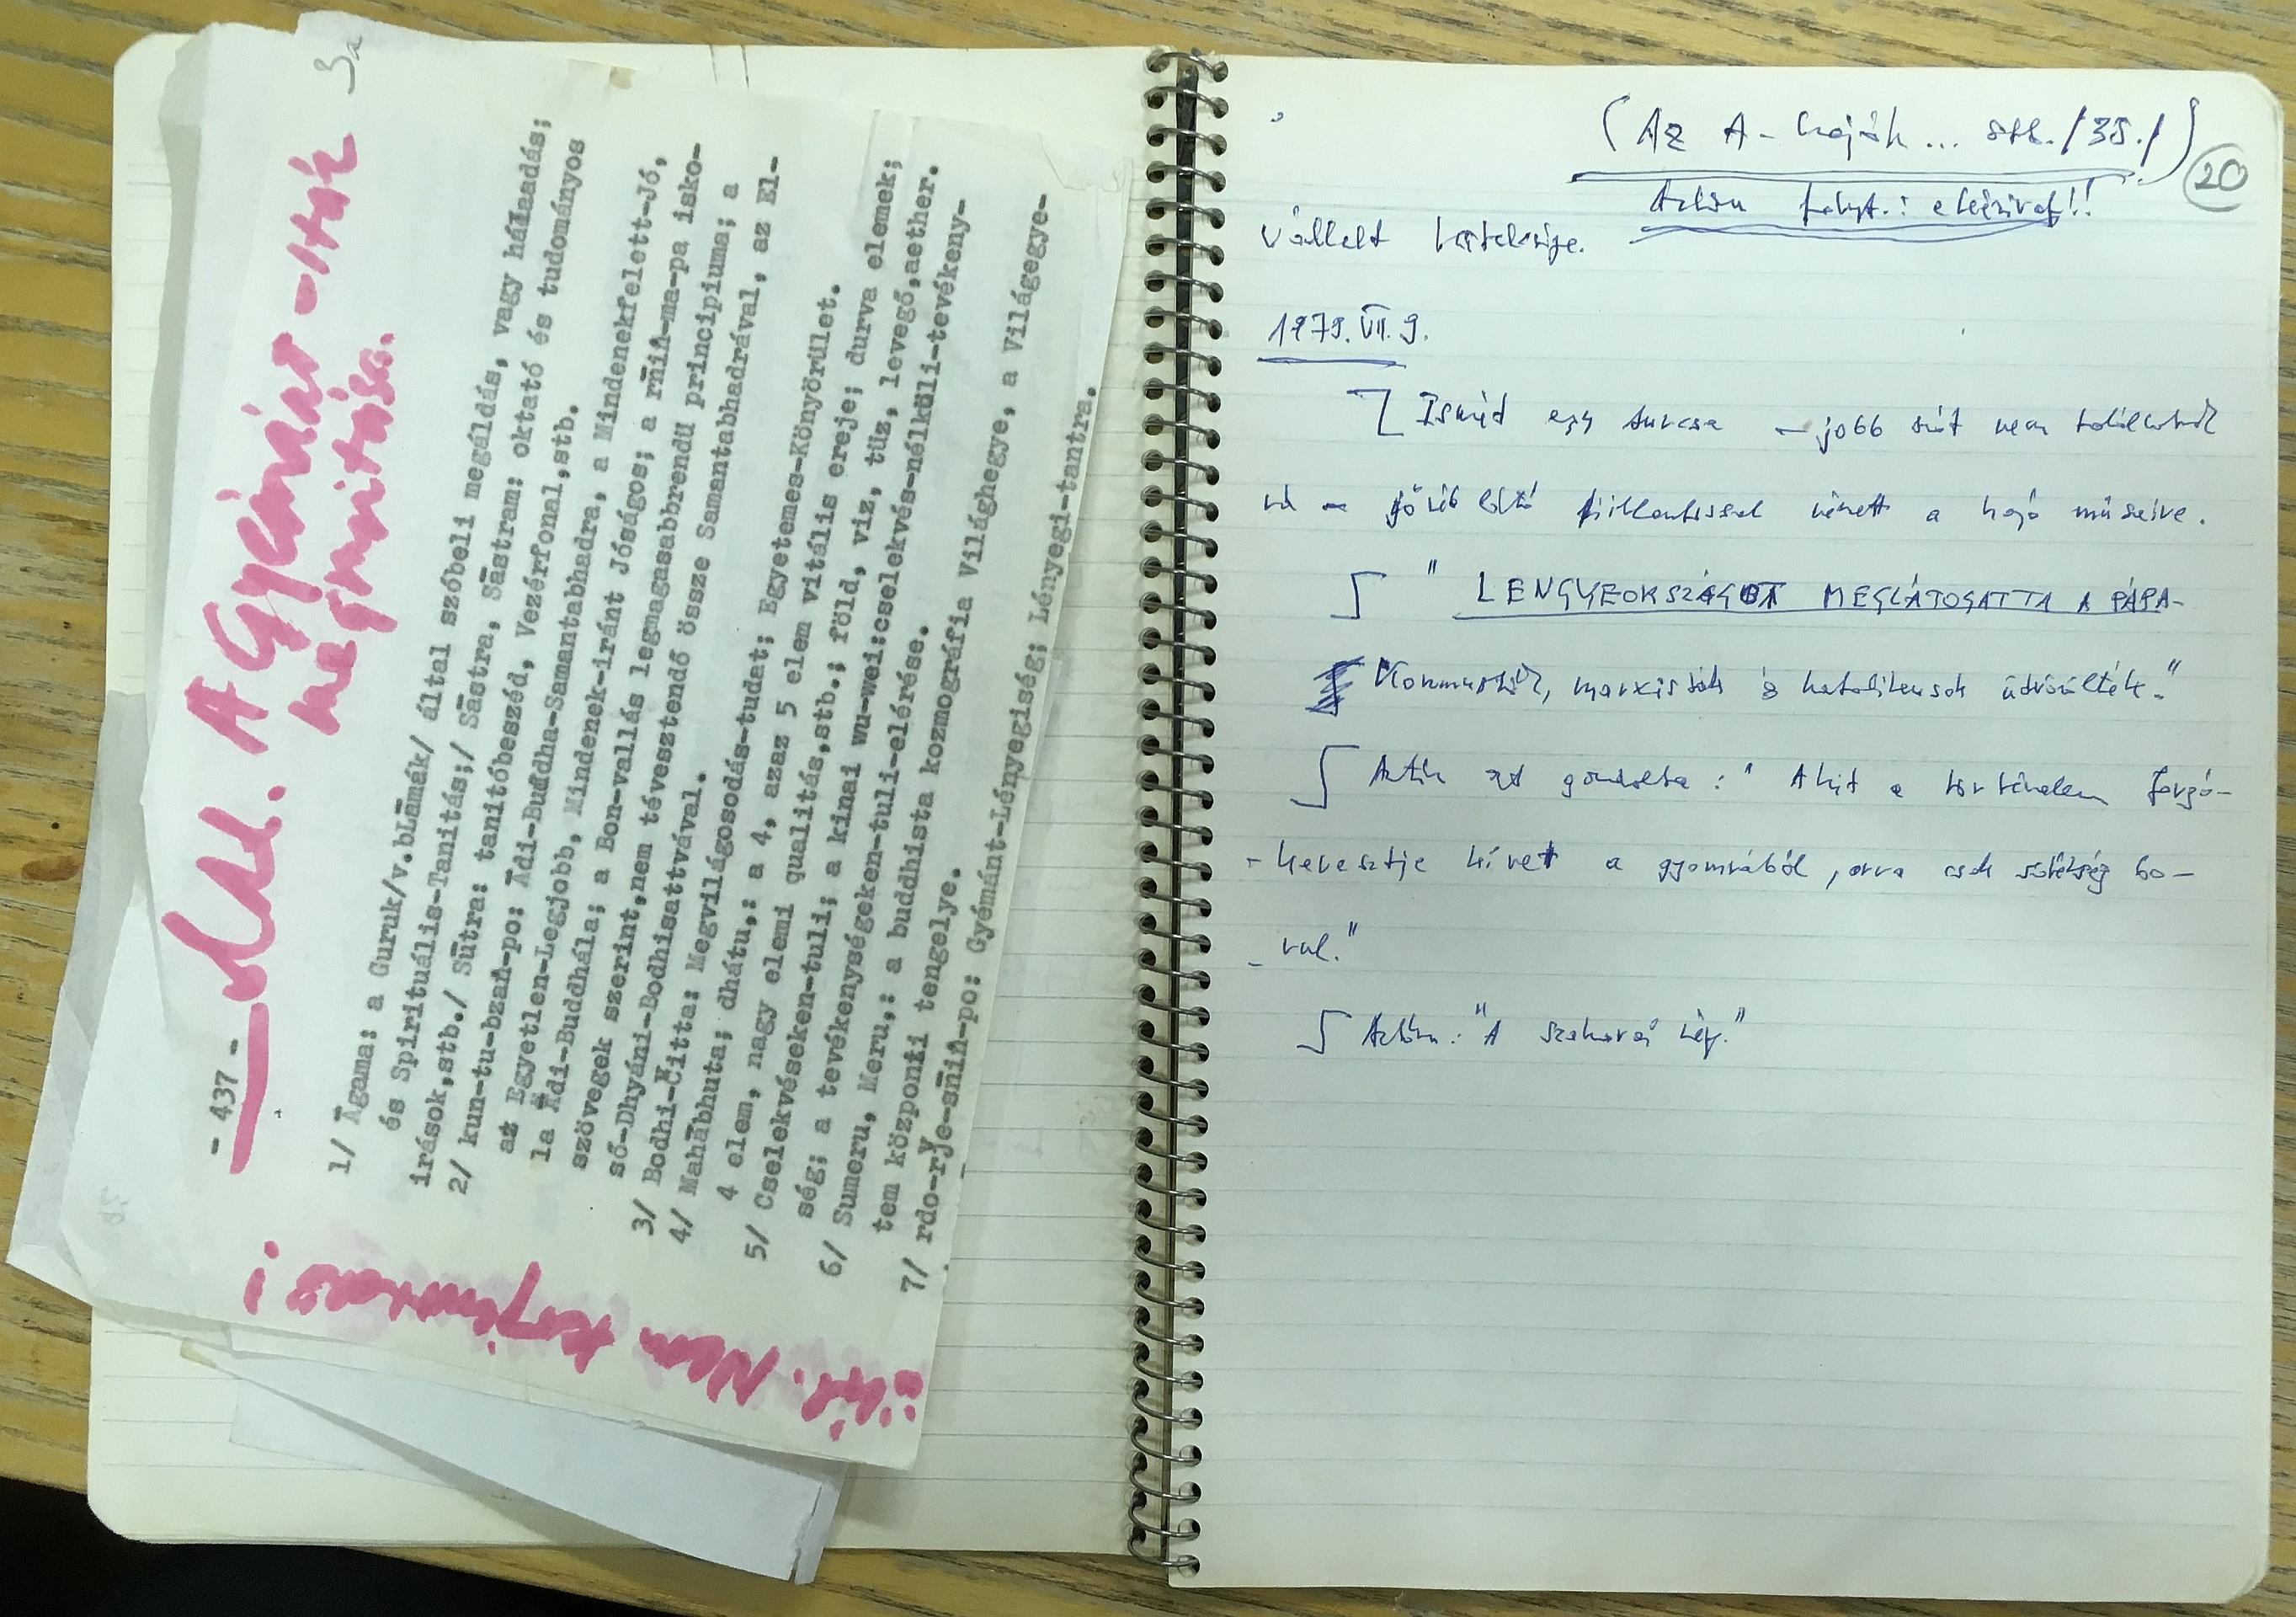 - 437 -
A Gyémánt-
megnyitása.
3a
1/ Āgama: a Guruk/v.bLāmák/ által szóbeli megáldás, vagy hálaadás;
és Spirituális-Tanitás;/ Sāstra, Sāstram: oktató és tudományos
irások,stb./ Sūtra: tanitóbeszéd, Vezérfonal,stb.
2/ kun-tu-bzań-po: Ādi-Buddha-Samantabhadra, a Mindenekfelett-Jó,
az Egyetlen-Legjobb, Mindenek-iránt Jóságos; a rñiń-ma-pa isko-
la Ādi-Buddhála; a Bon-vallás legmagasabbrendü principiuma; a
szövegek szerint,nem tévesztendő össze Samantabhadrával, az El-
ső-Dhyáni-Bodhisattvával.
3/ Bodhi-Citta: Megvilágosodás-tudat; Egyetemes-Könyörület.
4/ Mahābhuta; dhátu,: a 4, azaz 5 elem vitális ereje; durva elemek;
4 elem, nagy elemi qualitás,stb.; föld, viz, tüz, levegő,aether.
5/ Cselekvéseken-tuli; a kinai wu-wei:cselekvés-nélküli-tevékeny-
ség; a tevékenységeken-tuli-elérése.
6/ Sumeru, Meru,: a buddhista kozmográfia Világhegye, a Világegye-
tem központi tengelye.
7/ rdo-rje-sñiń-po: Gyémánt-Lényegiség; Lényegi-tantra.
Nem
(Az A- hajók... stb./35./)
20
folyt.:
Vállalt kötelessége.
1979.VII.9.
Ismét egy furcsa - jobb szót nem találhatok
rá - pillantással nézett a hajó műszeire.
" LENGYEORSZÁGOT MEGLÁTOGATTA A PÁPA-
Kommunisták, marxisták és katolikusok üdvözölték."
azt gondolta: " Akit a történelem forgó-
- kereket a gyomrából, arra csak sötétség bo-
- rul."
"A szaharai nép."